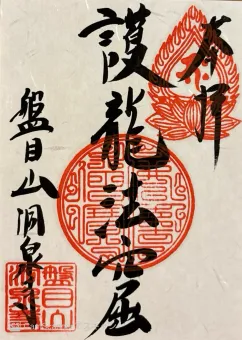 奉拝
護龍法窟
盤目山洞泉寺